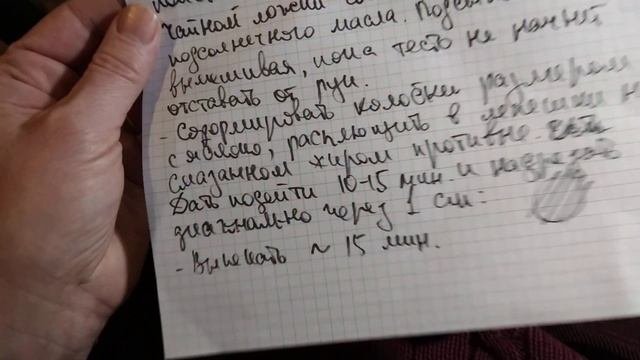 чайной ложки со
подсолнечного масла.
вымешивая, пока тесто не начнёт
отставать от рук.
- Сформировать колобки размером
с яблоко, расплющить в лепешки н
смазанном жиром противне.
Дать подойти 10-15 мин и надрезать
диагнально через 1 см:
- Выпекать ~ 15 мин.